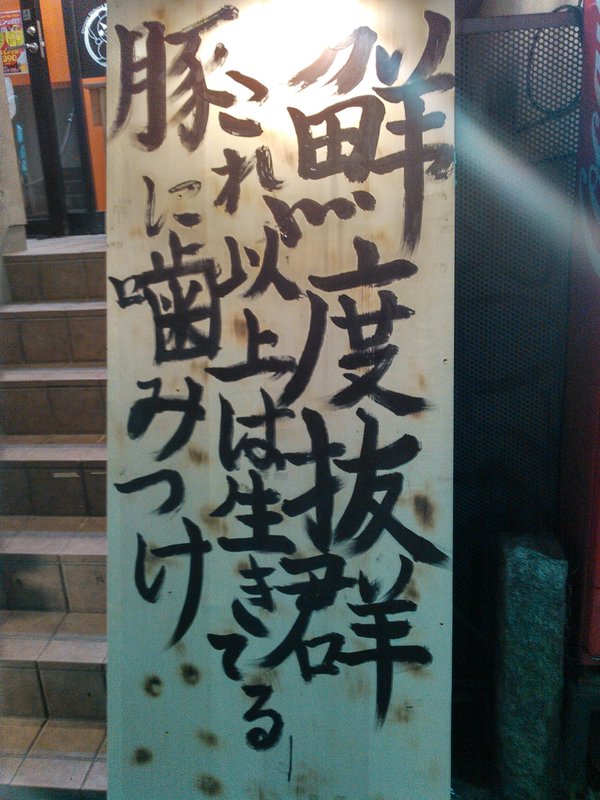 鮮度抜群
これ以上は生きてる
豚に噛みつけ